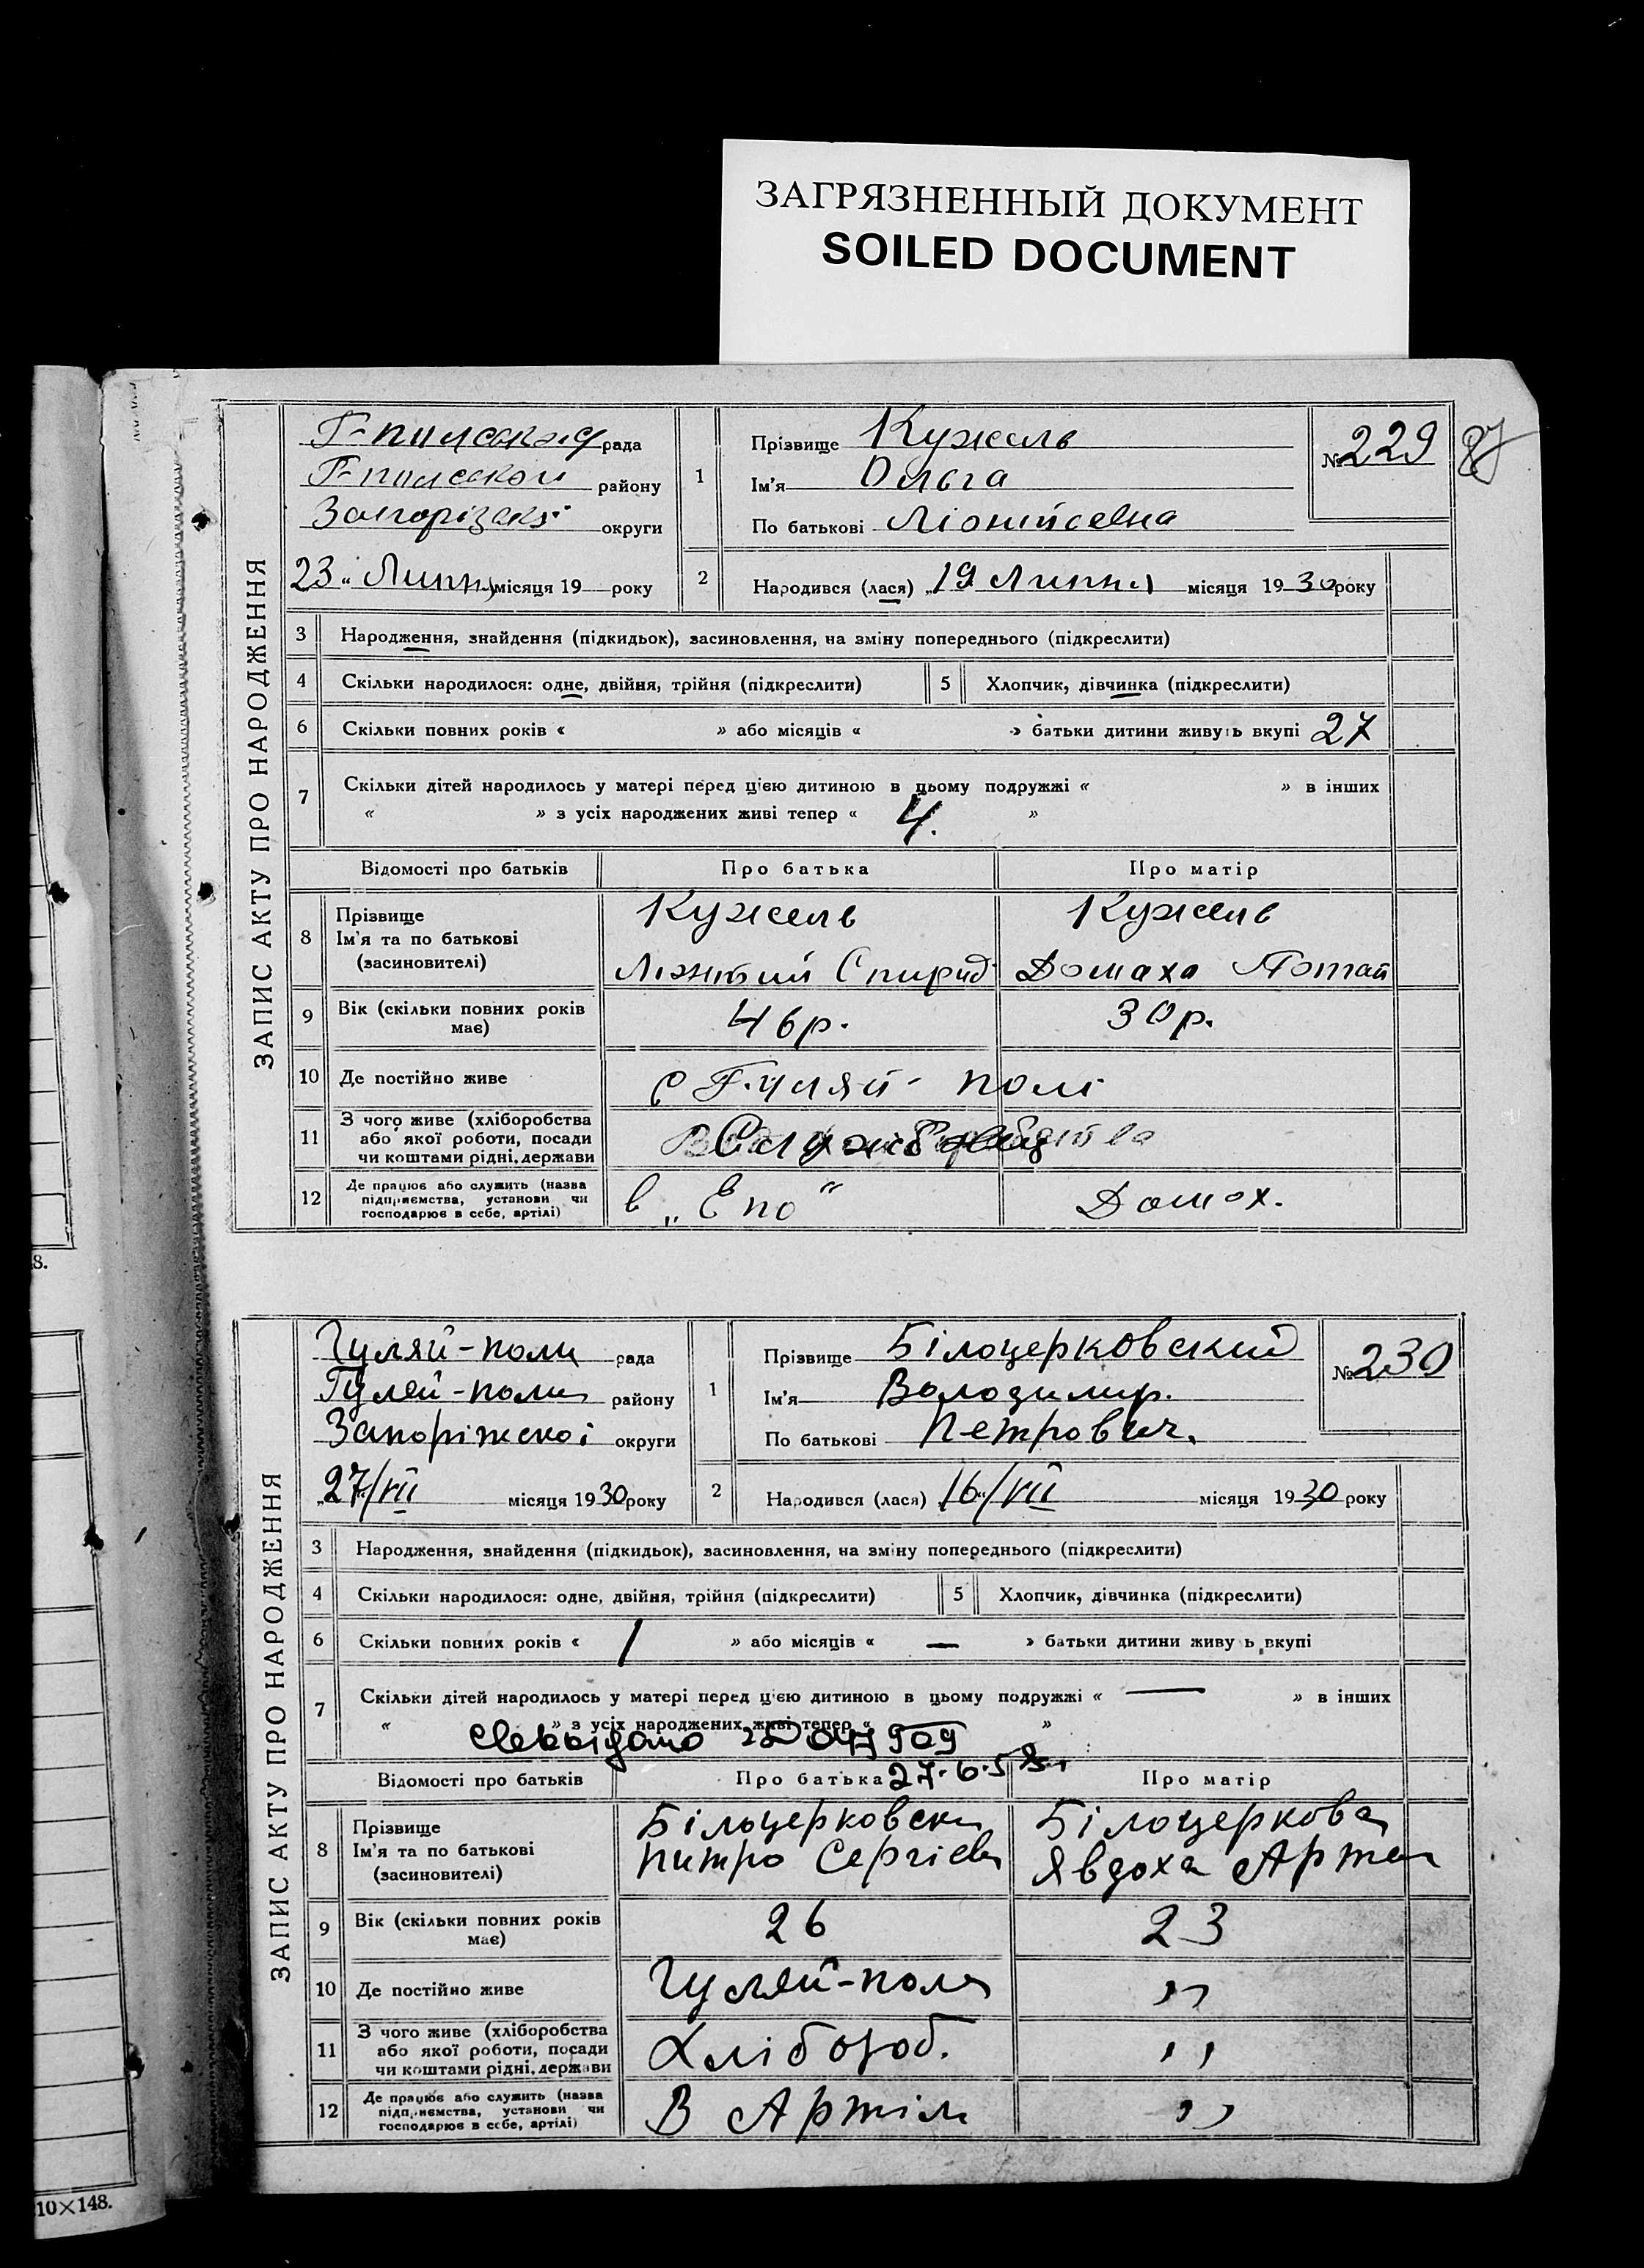 ЗАГРЯЗНЕННЫЙ ДОКУМЕНТ
SOILED DOCUMENT
ЗАПИС АКТУ ПРО НАРОДЖЕННЯ
рада
району
округи
23 " Липня місяця 19 року
1
Прізвище Кужель
Ім'я Ольга
По батькові
№ 229
87
2
Народився (лася) " 19 Липня місяця 1930 року
3 Народження, знайдення (підкидьок), засиновлення, на зміну попереднього (підкреслити)
4 Скільки народилося: одне, двійня, трійня (підкреслити) 5 Хлопчик, дівчинка (підкреслити)
6 Скільки повних років « » або місяців « » батьки дитини живуть вкупі 27
7 Скільки дітей народилось у матері перед цією дитиною в цьому подружжі « » в інших
« » з усіх народжених живі тепер « 4. »
Відомості про батьків Про батька Про матір
8 Прізвище Кужель Кужель
Ім'я та по батькові
(засиновителі) Спирид Домаха
9 Вік (скільки повних років має) 46р. 30р.
10 Де постійно живе с Гуляй-полі
11 З чого живе (хліборобства
або якої роботи, посади
чи коштами рідні, держави
12 Де працює або служить (назва
підприємства, установи чи
господарює в себе, артілі) в „Епо“ Домох.
8.
ЗАПИС АКТУ ПРО НАРОДЖЕННЯ
Гуляй-поли рада
Гуляй-поли району
Запоріжскої округи
„27"/VII місяця 1930 року
1
Прізвище Білоцерковский
Ім'я Володимир.
По батькові Петрович.
№ 230
2
Народився (лася) „16"/VII місяця 1930 року
3 Народження, знайдення (підкидьок), засиновлення, на зміну попереднього (підкреслити)
4 Скільки народилося: одне, двійня, трійня (підкреслити) 5 Хлопчик, дівчинка (підкреслити)
6 Скільки повних років « 1 » або місяців « — » батьки дитини живу ь вкупі
7 Скільки дітей народилось у матері перед цією дитиною в цьому подружжі « — » в інших
« » з усіх народжених живі тепер « »
Відомості про батьків Про батька 27.6.58 Про матір
8 Прізвище Білоцерковски Білоцеркова
Ім'я та по батькові Питро Сергієв Явдоха Артем
(засиновителі)
9 Вік (скільки повних років має) 26 23
10 Де постійно живе Гуляй-поля ,,
11 З чого живе (хліборобства
або якої роботи, посади
чи коштами рідні, держави Хлібороб. ,,
12 Де працює або служить (назва
підприємства, установи чи
господарює в себе, артілі) В Артіли ,,
10×148.